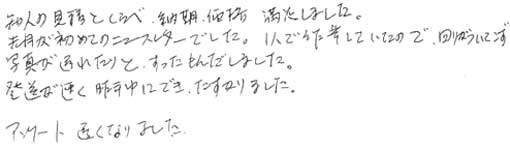 知人の見積とくらべ、納期、価格 満足しました。
先月が初めてのニュースレターでした。1人で作業していたので、回りがついてず
写真が送れたりと、すったもんだしました。
発送が速く 昨年中にでき、たすかりました。
アンケート 遅くなりました